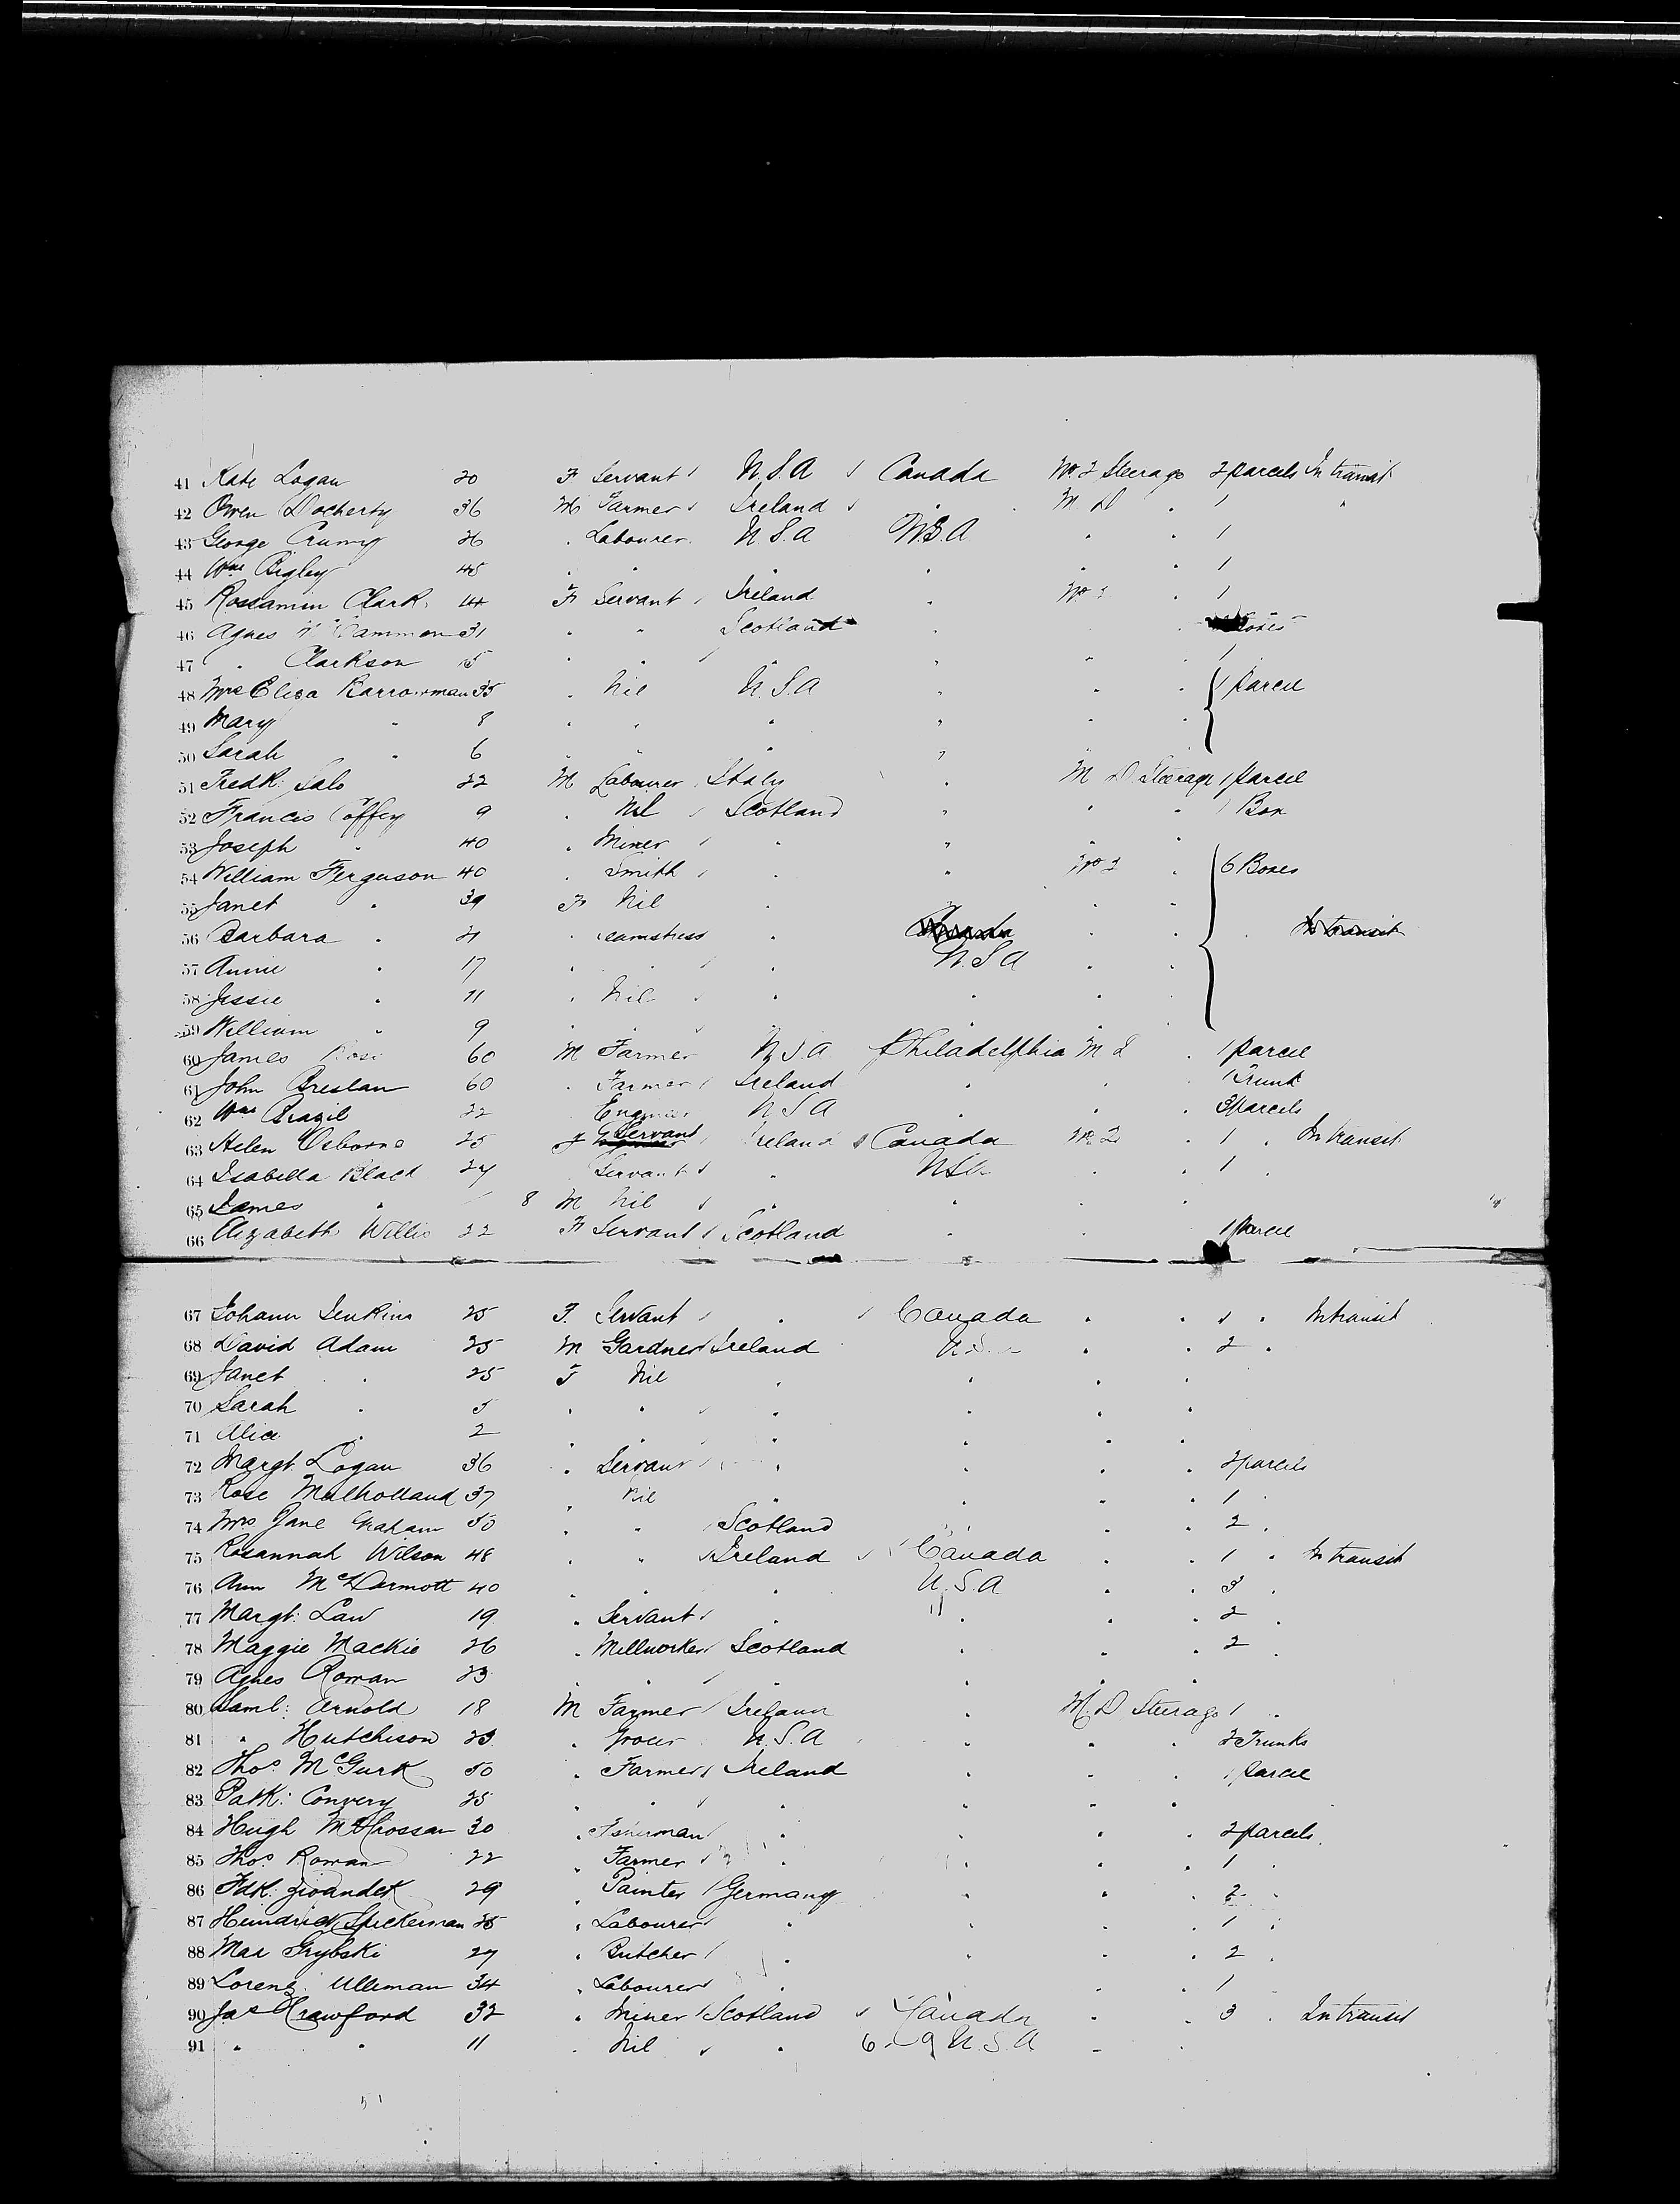 41 Kate Logan 20 F Servant U.S.A Canada No. 2 Steerage 2 parcels In transit
42 Owen Docherty 36 M Farmer Ireland " M. D " 1 "
43 George Crumy 26 " Labourer U.S.A U.S.A " " 1
44 Wm Bigley 45 " " " " " 1
45 Rossamin Clark 14 F Servant Ireland " " 1
46 Agnes 31 " " Scotland " " Boxes
47 " Clarkson 15 " " " " " " 1
48 Mrs Eliza Barrowman 35 " Nil U.S.A " " " 1 Parcel
49 Mary " 8 " " " " " "
50 Sarah " 6 " " " " "
51 Fredk: Salo 22 M Labourer Italy " M D Steerage 1 Parcel
52 Francis Coffey 9 " Nil Scotland " " " 1 Box
53 Joseph " 40 " Miner " " "
54 William Ferguson 40 " Smith " " No 2 " 6 Boxes
55 Janet " 39 F Nil " " " "
56 Barbara " 21 " Seamstress " Canada " " In transit
57 Annie " 17 " " " U.S.A " "
58 Jessie " 11 " Nil " " " "
59 William " 9 " " " " "
60 James Rose 60 M Farmer U.S.A Philadelphia M D " 1 parcel
61 John Breslan 60 " Farmer Ireland " " " 1 Trunk
62 Wm Brazil 22 " Engineer U S A " " " 3 parcels
63 Helen Osborne 25 F Servant Ireland Canada No 2 " 1 " In transit
64 Isabella Black 24 " Servant " U S A " " 1 "
65 James " 8 M Nil " " " "
66 Elizabeth Willis 22 F Servant Scotland " " 1 Parcel
67 Johann Jenkins 25 F. Servant " Canada " " 1 " In transit
68 David Adam 25 M Gardner Ireland U.S. " " 2 "
69 Janet " 25 F Nil " " " "
70 Sarah " 5 " " " " " "
71 Alice " 2 " " " " " "
72 Margt Logan 36 " Servant " " " " 2 parcels
73 Rose Mulholland 37 " Nil " " " " 1 "
74 Mrs Jane Graham 50 " " Scotland " " " 2 "
75 Rosannah Wilson 48 " " Ireland Canada " " 1 " In transit
76 Ann McDarmott 40 " " " U.S.A " " 3 "
77 Margt: Law 19 " Servant " " " " 2 "
78 Maggie Mackie 26 " Millworker Scotland " " " 2 "
79 Agnes Rowan 23 " " " " " "
80 Saml: Arnold 18 M Farmer Ireland " M. D Steerage 1 "
81 " Hutchison 23 " Grocer U.S.A " " " 2 Trunks
82 Thos McGurk 50 " Farmer Ireland " " " 1 parcel
83 Patk: Convery 25 " " " " " "
84 Hugh McCrossan 30 " Fisherman " " " " 2 parcels
85 Thos Rowan 22 " Farmer " " " " 1 "
86 Fdk: 29 " Painter Germany " " " 2 "
87 Heindrick Spickerman 25 " Labourer " " " " 1 "
88 Max Grybski 27 " Butcher " " " " 2 "
89 Lorenz Ulleman 34 " Labourer " " " 1 "
90 Jas Crawford 32 " Miner Scotland Canada " " 3 " In transit
91 " " 11 " Nil " 6 - 9 U.S.A. " "